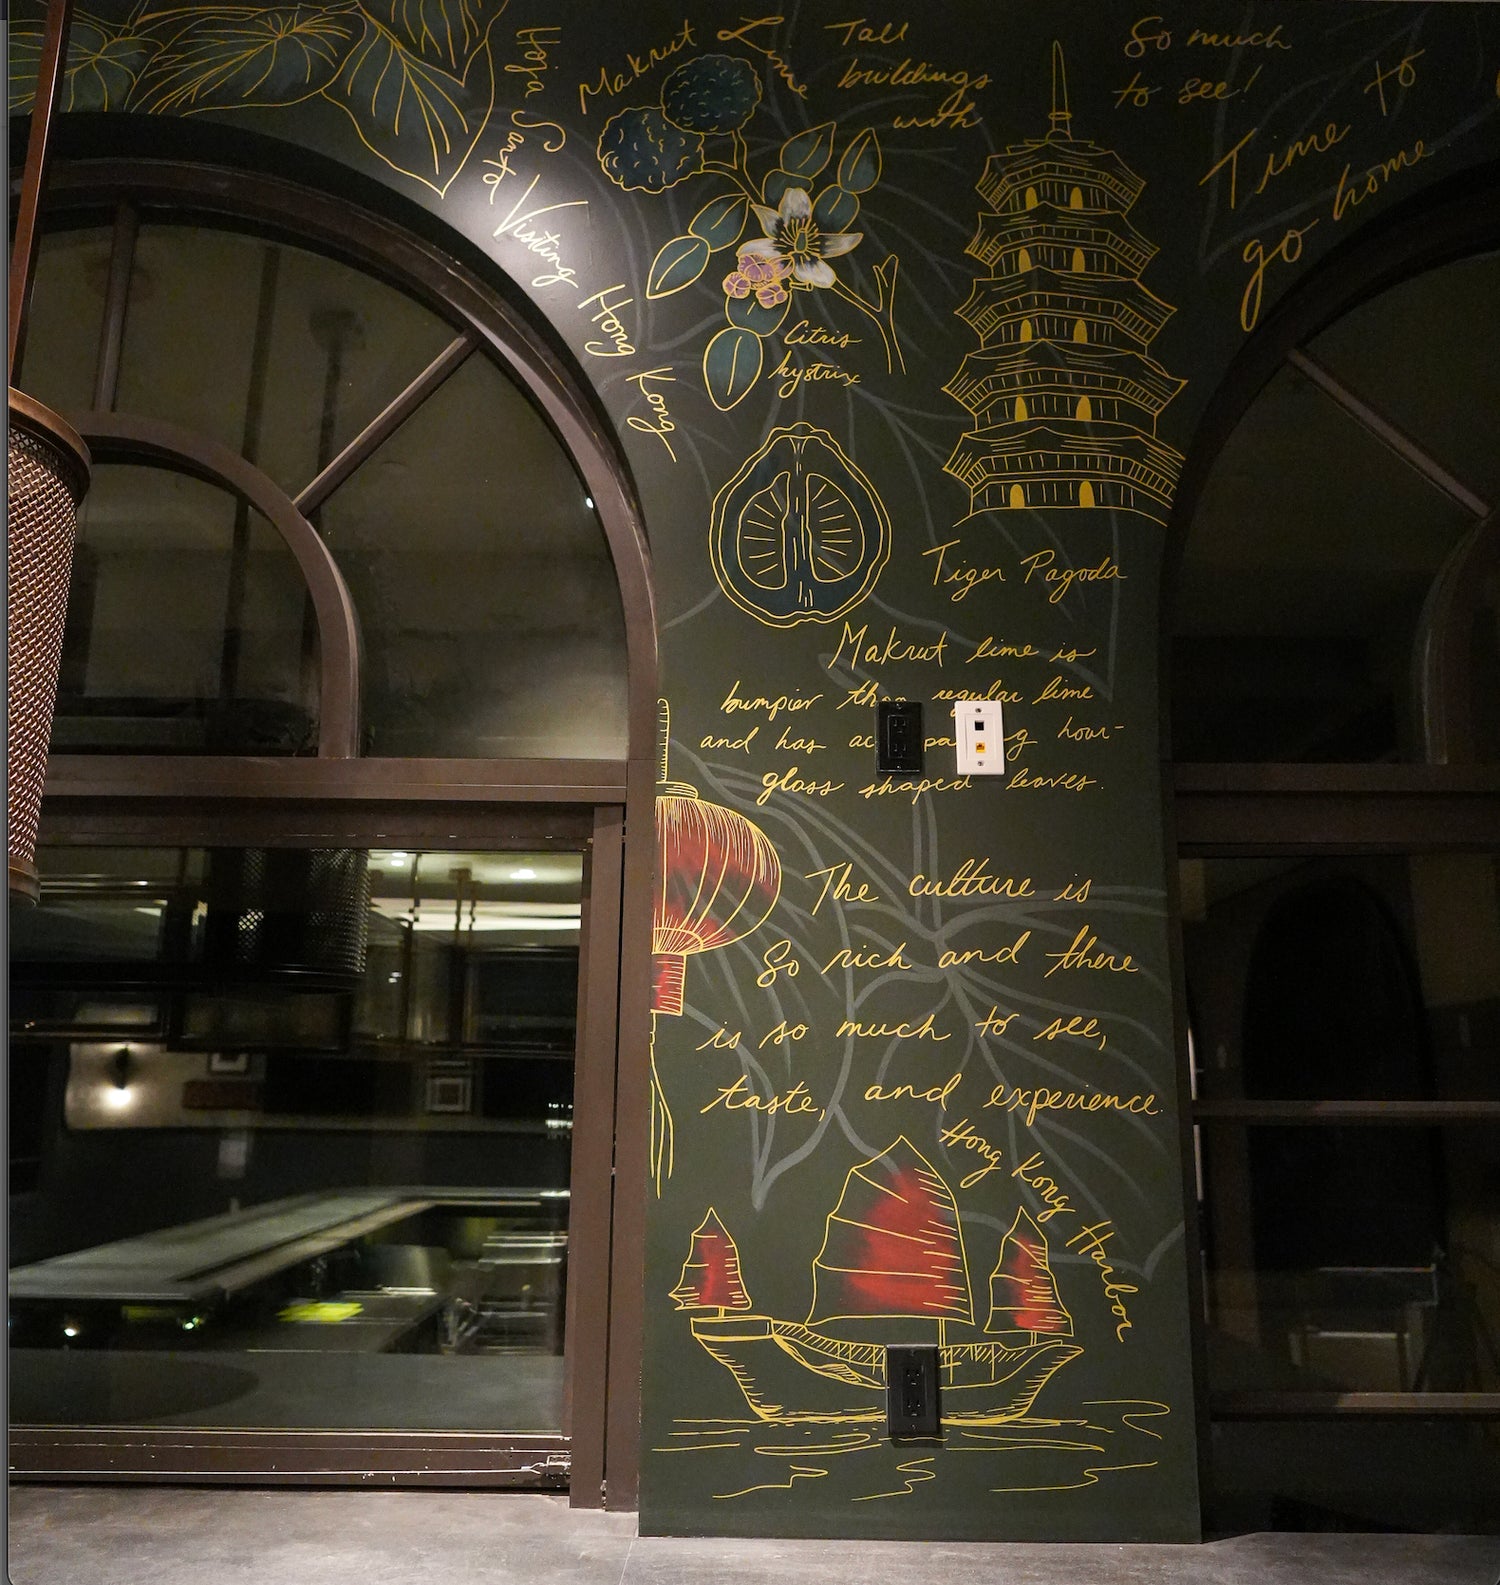 Hoja Santa
Visiting Hong Kong
Makrut Lime
Tall
buildings
with
So much
to see!
Time to
go home
Citris
hystrix
Tiger Pagoda
Makrut lime is
bumpier than regular lime
and has hour-
glass shaped leaves.
The culture is
So rich and there
is so much to see,
taste, and experience.
Hong Kong Harbor